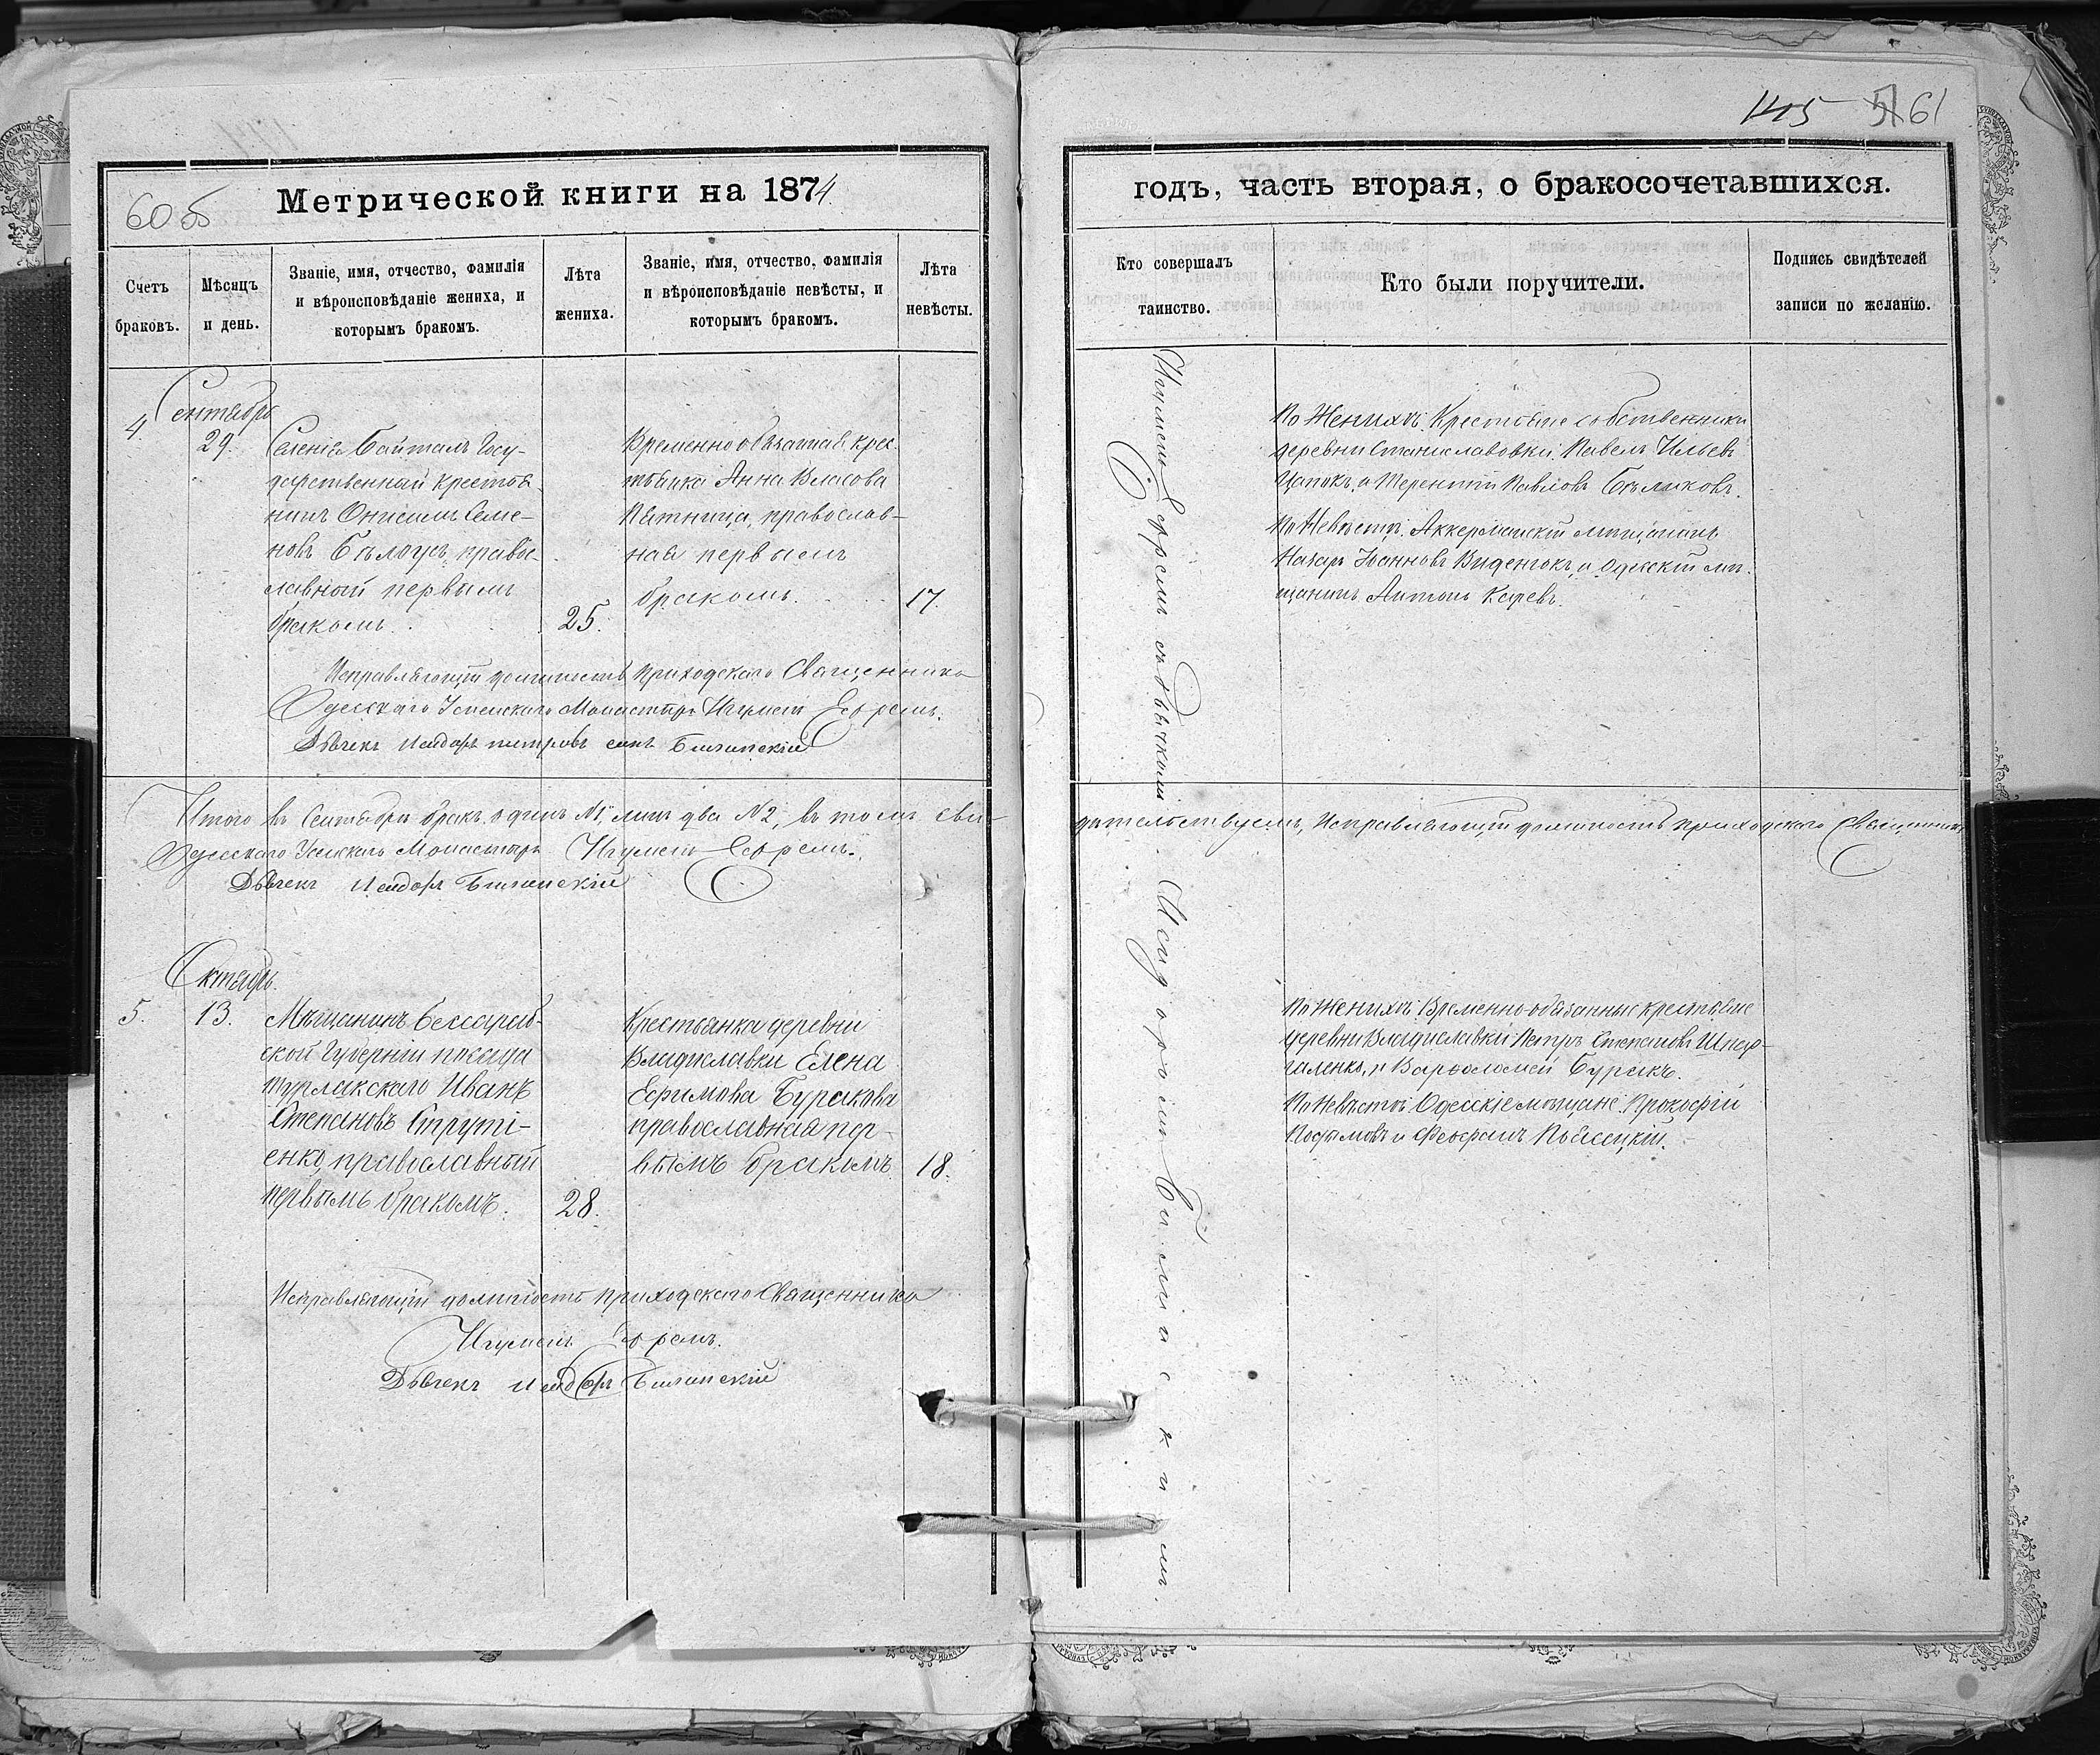 60 об
Метрической книги на 1874.
Счетъ браковъ.
Мѣсяцъ и день.
Званіе, имя, отчество, фамилія
и вѣроисповѣданіе жениха, и
которымъ бракомъ.
Лѣта жениха.
Званіе, имя, отчество, фамилія
и вѣроисповѣданіе невѣсты, и
которымъ бракомъ.
Лѣта невѣсты.
Сентябрь
4.
29.
Селенія Байталъ Госу-
дарственный крестья-
нинъ Онисимъ Семе-
новъ Бѣлоусъ, правос-
лавный первымъ
бракомъ.
25.
Временно обязанная крес-
тьянка Анна Власова
Пятница, православ-
ная первымъ
бракомъ.
17.
Исправляющій должность Приходскаго Священника
Одесскаго Успенскаго Монастыря Игуменъ Ефремъ.
Дьячекъ Исидоръ петровъ сынъ
Итого въ Сентябрѣ бракъ одинъ №1, лицъ два №2, въ томъ сви-
Одесскаго Успенскаго Монастыря Игуменъ Ефремъ.
Дьячекъ Исидоръ
Октябрь.
5.
13.
Мѣщанинъ Бессараб-
ской Губерніи посада
Турлакскаго Иванъ
Степановъ Струті-
енко, православный
первымъ бракомъ.
28.
Крестьянка деревни
Владиславки Елена
Ефимова Буракова
православная пер-
вымъ бракомъ.
18.
Исправляющій должность приходскаго Священника
Игуменъ Ефремъ.
Дьячекъ Исидоръ
61
годъ, часть вторая, о бракосочетавшихся.
Кто совершалъ таинство.
Кто были поручители.
Подпись свидѣтелей
записи по желанію.
Игуменъ Ефремъ съ дьячкомъ Исидоромъ
По Женихѣ: Крестьяне собственники
деревни Станиславовки Павелъ Ильевъ
Цапокъ, и Терентій Павловъ Бѣликовъ.
По Невѣстѣ: Аккерманскій мѣщанинъ
Назаръ Іоанновъ и Одесскій мѣ-
щанинъ Антонъ Каревъ.
дѣтельствуемъ, Исправляющій должность приходскаго Священника
По Женихѣ: Временно-обязанные крестьяне
деревни Владиславки Петръ Степановъ
и Варфоломей Буракъ.
По Невѣстѣ: Одесскіе мѣщане: Прокофій